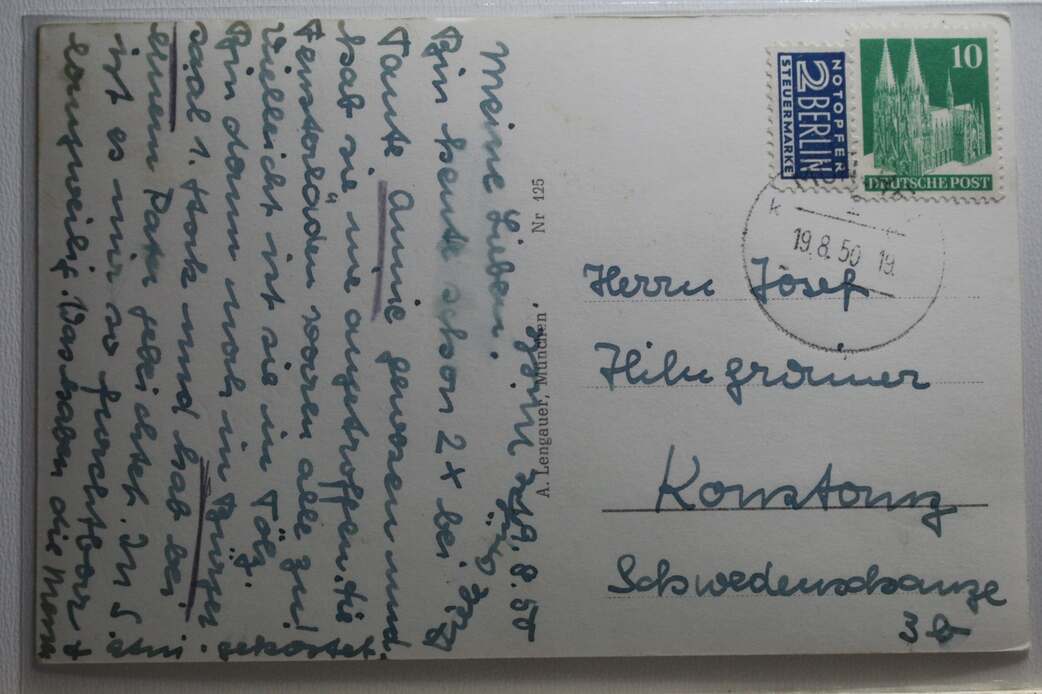 Meine Lieben!
Bin heute schon 2x bei
Tante Annie gewesen und
hab sie nie angetroffen. die
Fensterläden waren alle zu!
Vielleicht ist sie in Tölz.
Bin dann noch in Bürger
saal 1. Stock und hab bei
einem Pater gebeichtet. In S.
ist es mir so furchtbar
langweilig. Was haben die
19.8.50
A. Lengauer, München. Nr 125
NOTOPFER
2 BERLIN
STEUERMARKE
10
DEUTSCHE POST
19.8.50 19
Herrn Josef
Konstanz
Schwedenschanze
3b